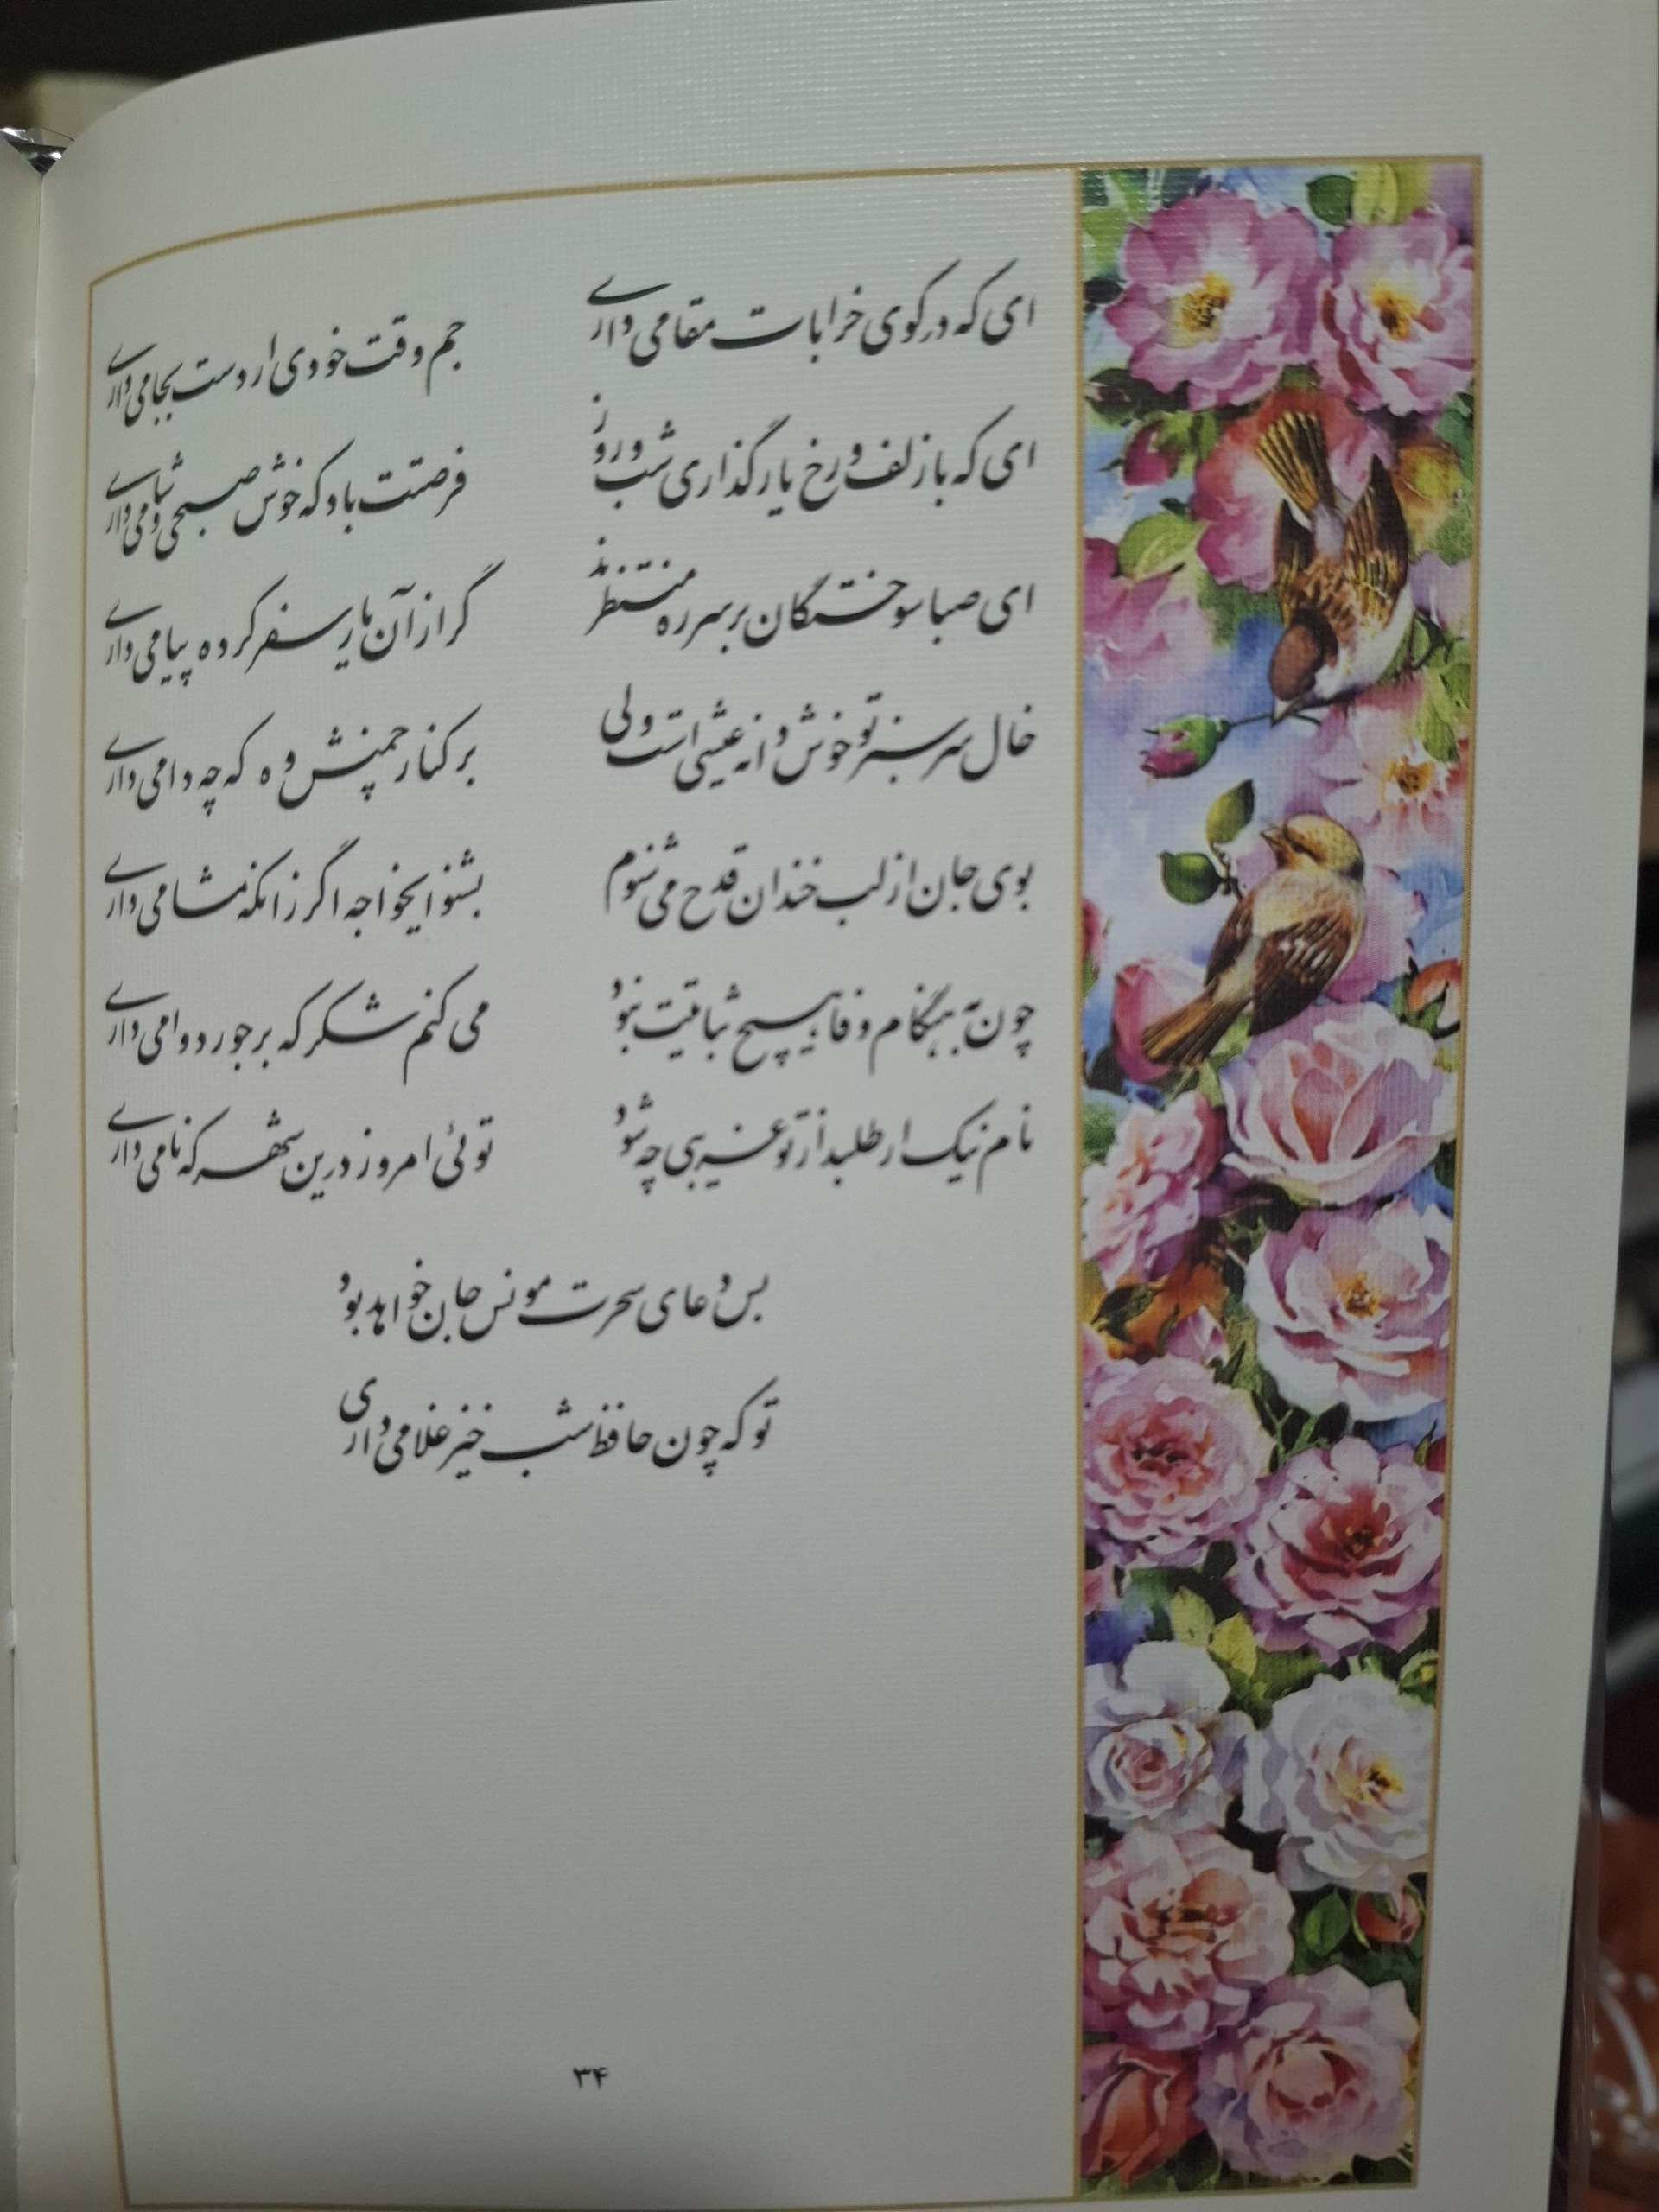 ای که در کوی خرابات مقامی داری
جم وقت خودی ار دست بجامی داری
ای که با زلف و رخ یار گذاری شب و روز
فرصتت باد که خوش صبحی و شامی داری
ای صبا سوختگان بر سر ره منتظرند
گر از آن یار سفر کرده پیامی داری
خال سرسبز تو خوش دانه عیشی است ولی
بر کنار چمنش وه که چه دامی داری
بوی جان از لب خندان قدح می شنوم
بشنو ایخواجه اگر زانکه مشامی داری
چون به هنگام وفا هیچ ثباتیت نبود
می کنم شکر که بر جور دوامی داری
نام نیک ار طلبد از تو غریبی چه شود
توئی امروز درین شهر که نامی داری
بس دعای سحرت مونس جان خواهد بود
تو که چون حافظ شب خیز غلامی داری
۳۴